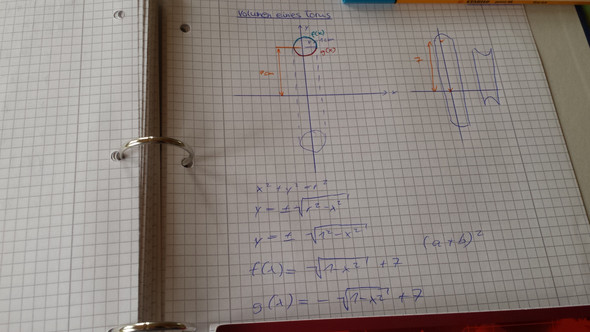 Volumen eines Torus
y
f(x)
g(x)
x
7
x² + y² = r²
y = ± √(r² - x²)
y = ± √(1² - x²)
(a + b)²
f(x) = √(1 - x²) + 7
g(x) = - √(1 - x²) + 7